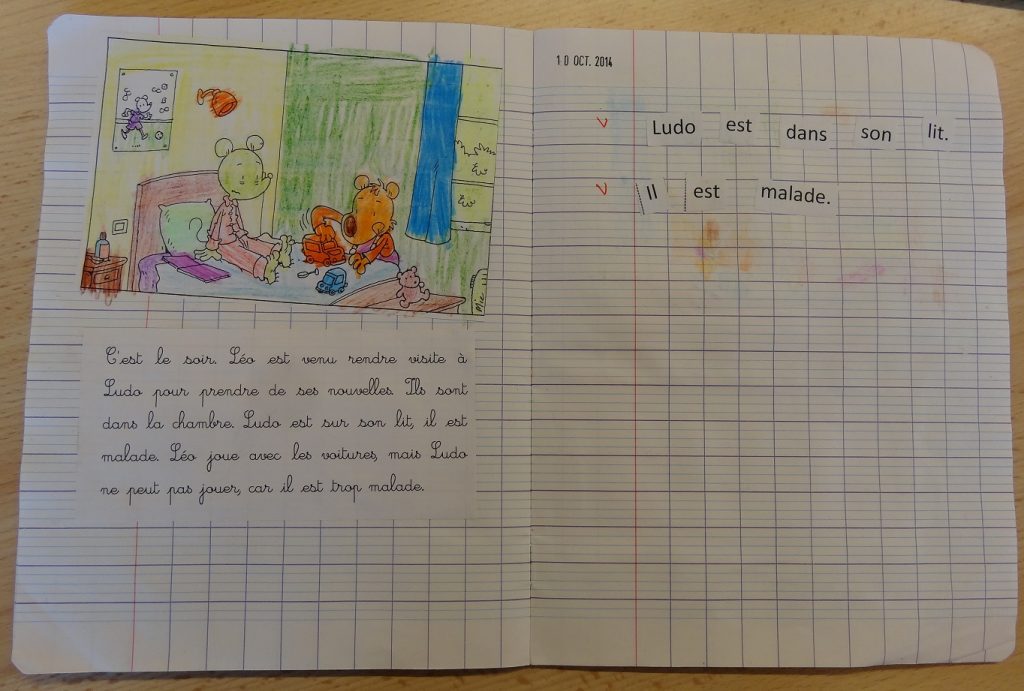 C'est le soir. Léo est venu rendre visite à
Ludo pour prendre de ses nouvelles. Ils sont
dans la chambre. Ludo est sur son lit, il est
malade. Léo joue avec les voitures, mais Ludo
ne peut pas jouer, car il est trop malade.
10 OCT. 2014
Ludo est dans son lit.
Il est malade.